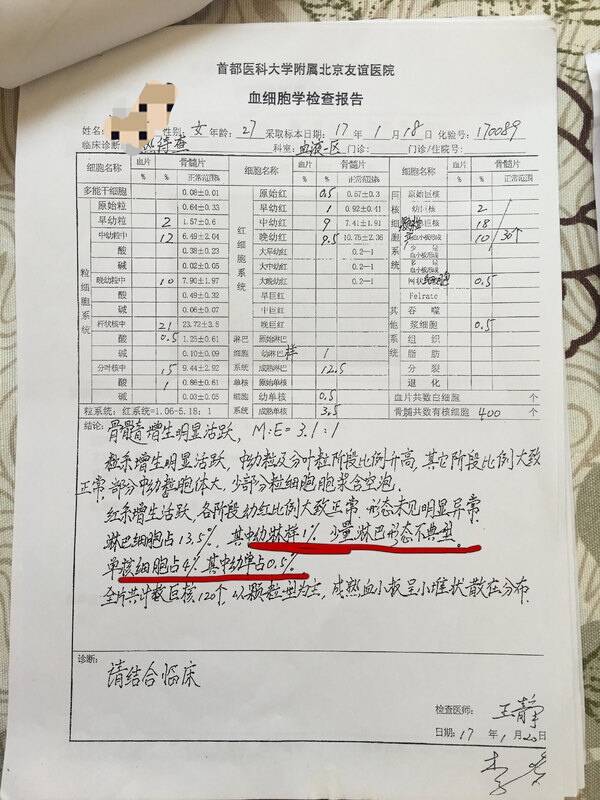 首都医科大学附属北京友谊医院
血细胞学检查报告
姓名: 性别: 女 年龄: 27 采取标本日期: 17 年 1 月 18 日 化验号: 170089
临床诊断: 热待查 科室: 血液一区 门诊: 门诊/住院号:
细胞名称 血片 骨髓片 细胞名称 血片 骨髓片 细胞名称 血片 骨髓片
% % 正常范围% % % 正常范围% % % 正常范围
多能干细胞 0.08±0.01 原始红 0.5 0.57±0.3 原始巨核
原始粒 0.64±0.33 早幼红 1 0.92±0.41 幼巨核 2
早幼粒 2 1.57±0.6 中幼红 9 7.41±1.91 巨核 18
中幼粒中 12 6.49±2.04 晚幼红 9.5 10.75±2.36 10 / 30个
酸 0.38±0.23 大早幼红 0.2—1
碱 0.02±0.05 大中幼红 0.2—1
晚幼粒中 10 7.90±1.97 大晚幼红 0.2—1 网状细胞 0.5
酸 0.49±0.32 早巨红 Felrate
碱 0.06±0.07 中巨红 吞噬
杆状核中 21 23.72±3.5 晚巨红 浆细胞 0.5
酸 0.5 1.25±0.61 原始淋巴 组织
碱 0.10±0.09 幼淋巴样 1 脂肪
分叶核中 15 9.44±2.92 成熟淋巴 12.5 分裂
酸 1 0.86±0.61 原始单核 退化
碱 0.03±0.05 幼单核 0.5 血片共数白细胞 个
粒系统: 红系统=1.06-5.18: 1 成熟单核 3.5 骨髓共数有核细胞 400 个
粒细胞系统
红细胞系统
淋巴细胞系统
单核细胞系统
巨核细胞系统
其他
结论: 骨髓增生明显活跃, M:E=3.1:1
粒系增生明显活跃, 中幼粒及分叶粒阶段比例升高, 其它阶段比例大致
正常. 部分中幼粒胞体大, 少部分粒细胞胞浆含空泡.
红系增生活跃, 各阶段幼红比例大致正常. 形态未见明显异常
淋巴细胞占13.5%. 其中幼淋样1%. 少量淋巴形态不典型.
单核细胞占4%. 其中幼单占0.5%.
全片共计数巨核120个, 以颗粒型为主, 成熟血小板呈小堆状散在分布.
诊断:
请结合临床
检查医师: 王静
日期: 17 年 1 月 20 日